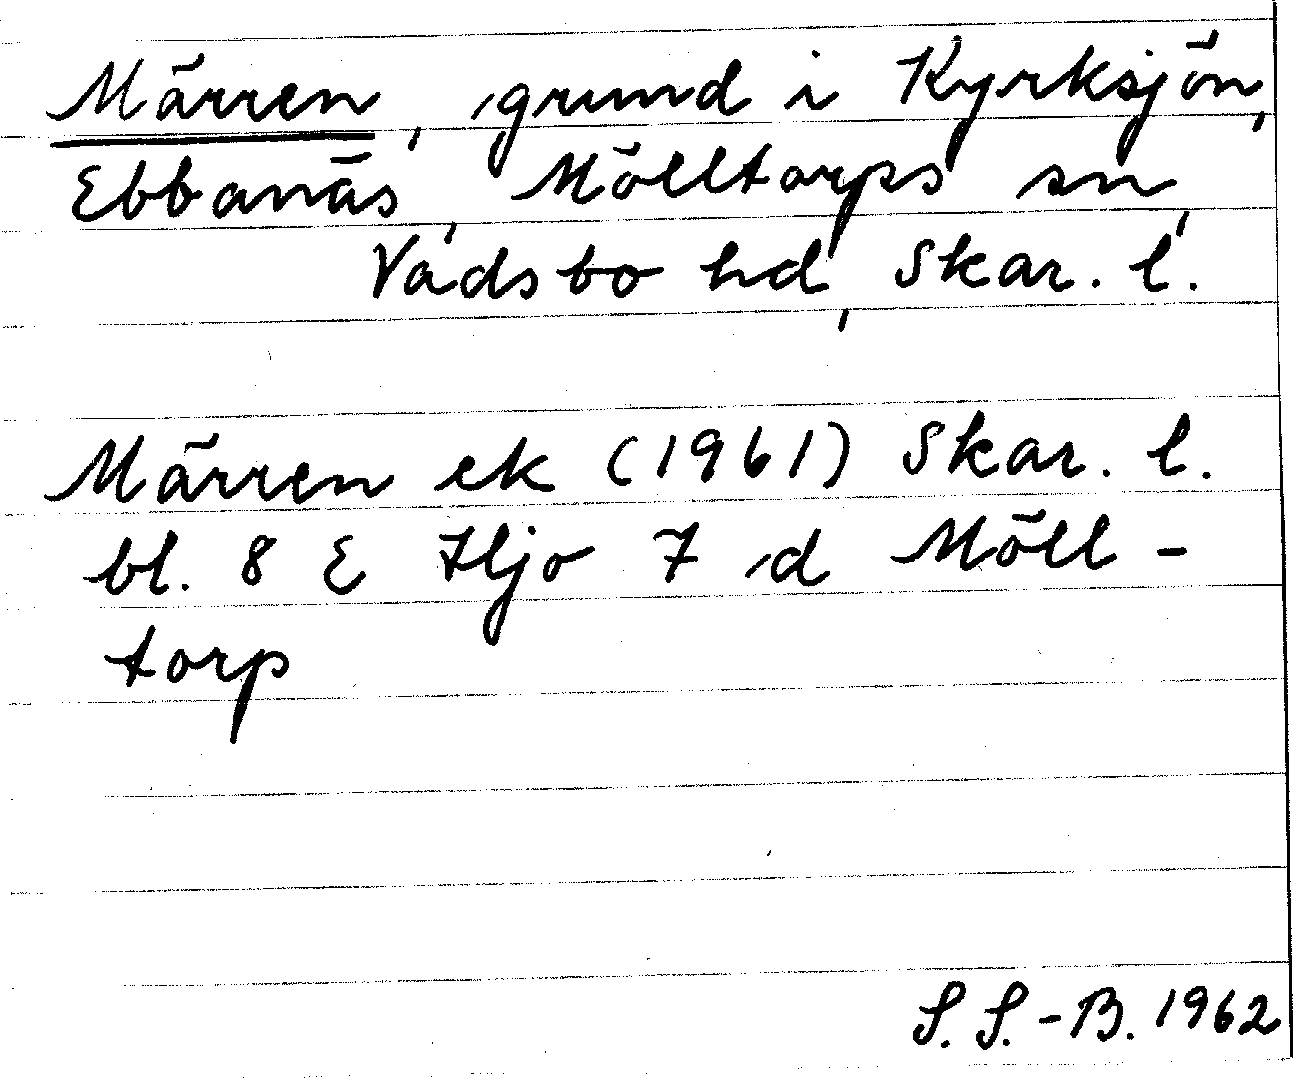 Märren, grund i Kyrksjön,
Ebbanäs, Mölltorps sn,
Vadsbo hd, Skar. l.
Märren ek (1961) Skar. l.
bl. 8 E Hjo 7 d Möll-
torp
S. S.-B. 1962